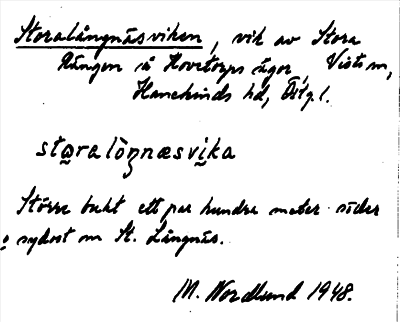 Storalångnäsviken, vik av Stora
Rängen å Hovetorps ägor Vist sn,
Hanekinds hd, Östg.l.
storalòŋnæsvika
Större bukt ett par hundra meter söder
o sydost om St. Långnäs.
M. Nordlund 1948.